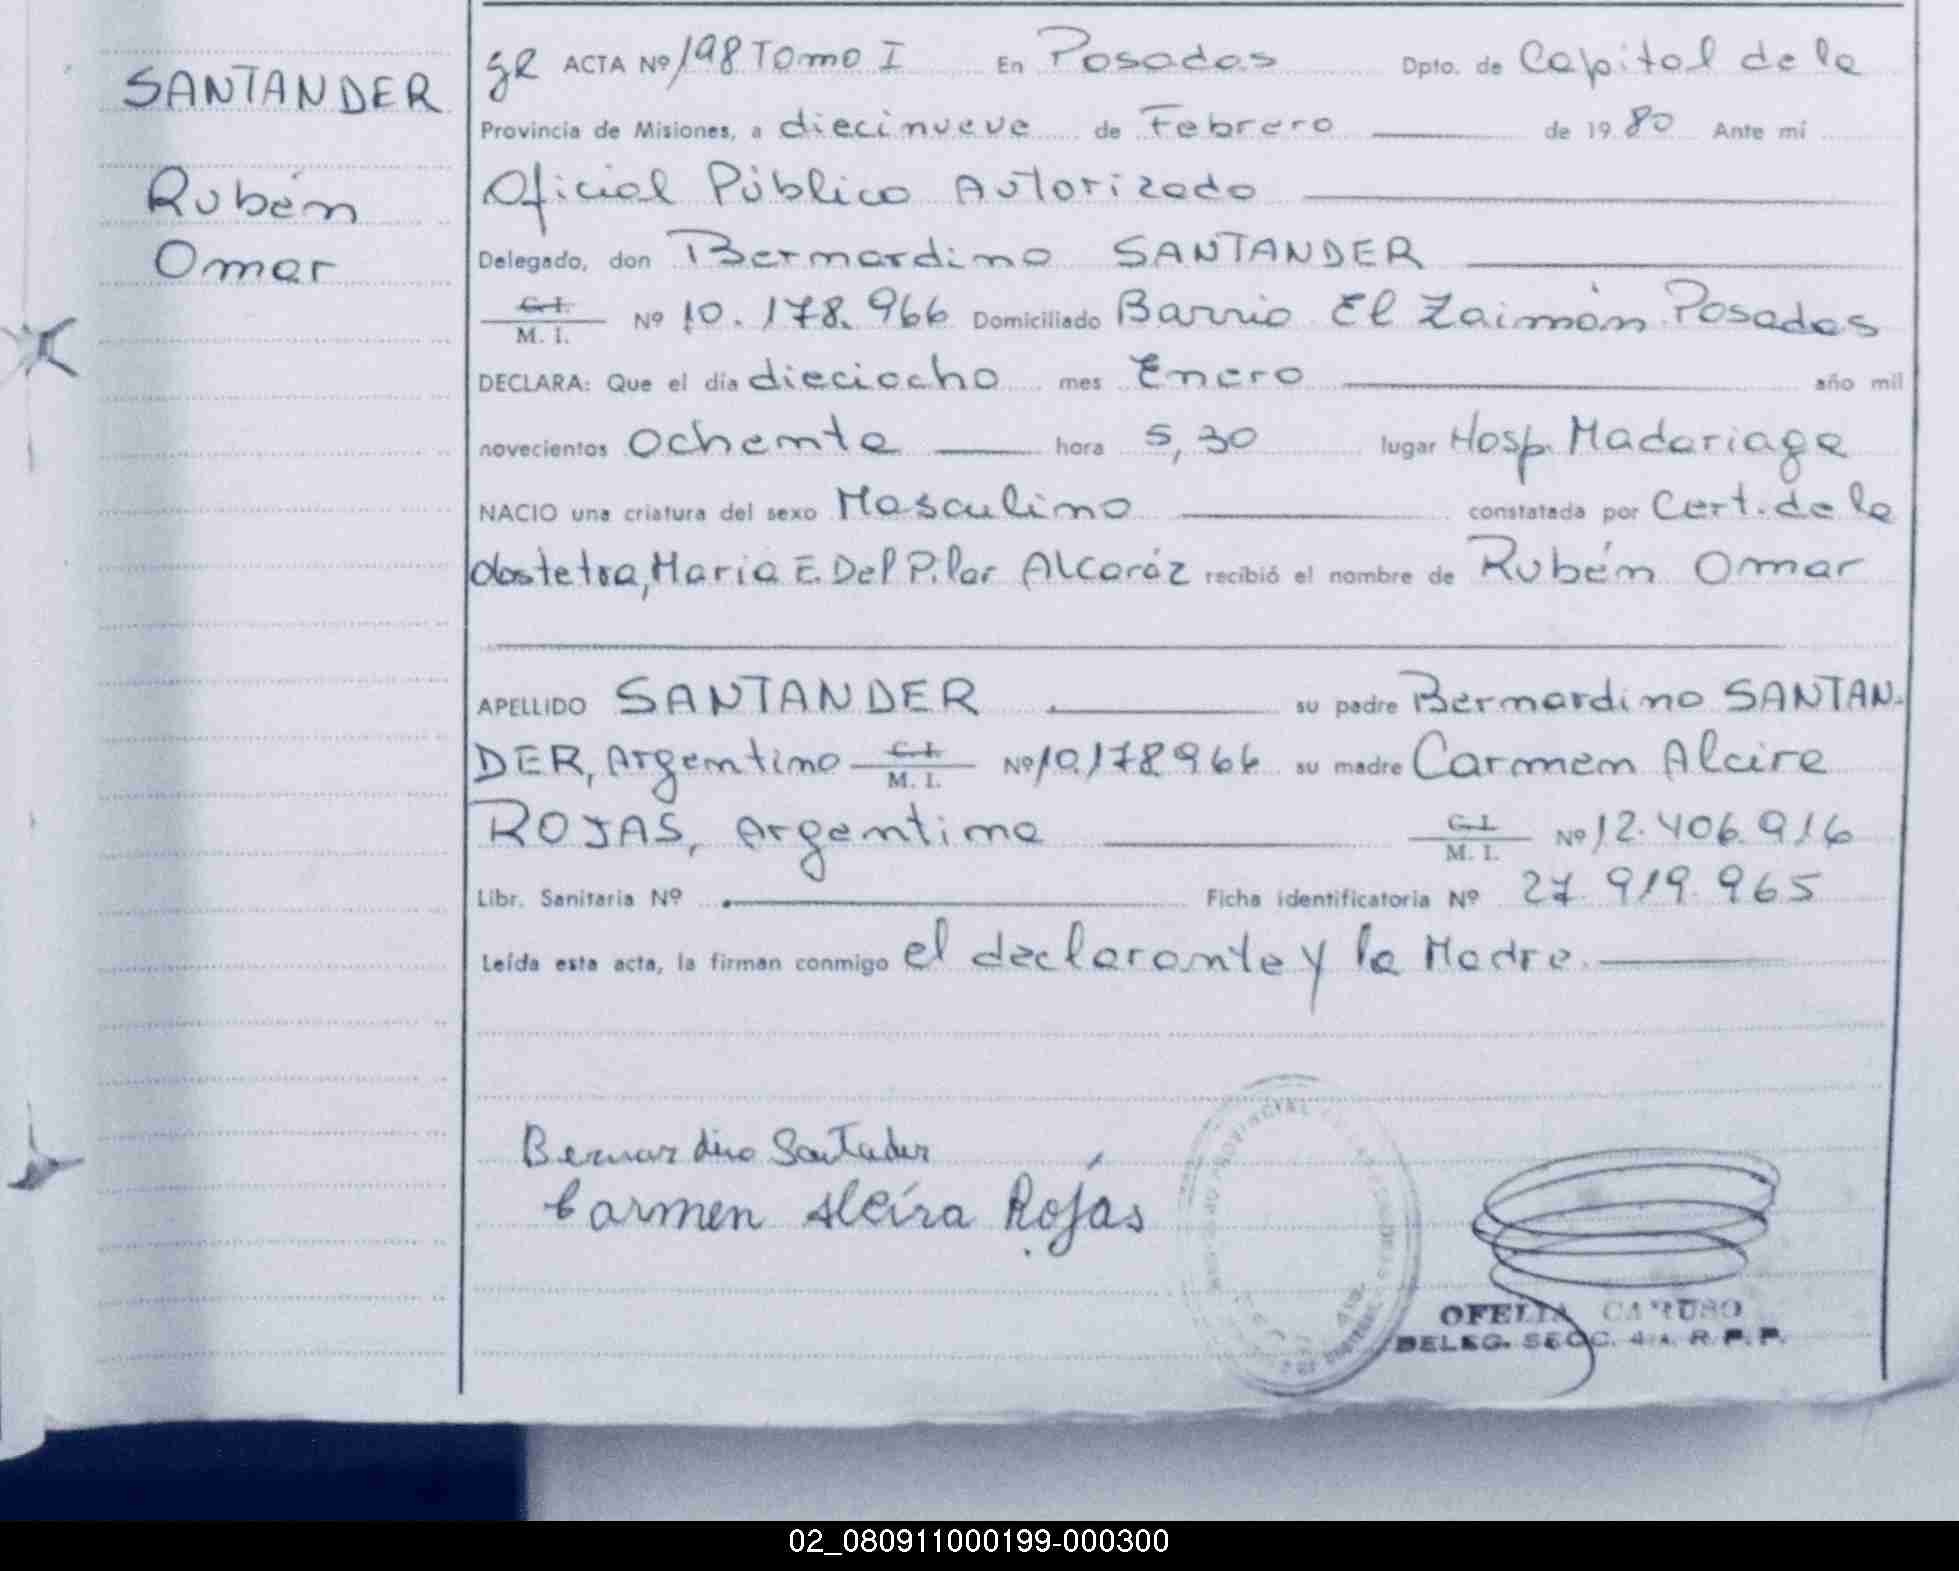 SANTANDER
Rubén
Omar
gR ACTA Nº 198 Tomo I En Posadas Dpto. de Capital de la
Provincia de Misiones, a diecinueve de Febrero de 19 80 Ante mí
Oficial Público Autorizado
Delegado, don Bernardino SANTANDER
C. I.
M. I. Nº 10.178.966 Domiciliado Barrio El Zaimán Posadas
DECLARA: Que el día dieciocho mes Enero año mil
novecientos Ochenta hora 5,30 lugar Hosp. Madariaga
NACIO una criatura del sexo Masculino constatada por Cert. de la
obstetra, Maria E. Del Pilar Alcaráz recibió el nombre de Rubén Omar
APELLIDO SANTANDER su padre Bernardino SANTAN-
DER, Argentino C. I. M. I. Nº 10.178966 su madre Carmen Alcira
ROJAS, Argentina C. I. M. I. Nº 12.406.916
Libr. Sanitaria Nº Ficha identificatoria Nº 27.919.965
Leída esta acta, la firman conmigo el declarante y la Madre.
Bernardino Santader
Carmen Alcira Rojas
OFELIA CARUSO
DELEG. SECC. 4a. R. P. P.
02_080911000199-000300